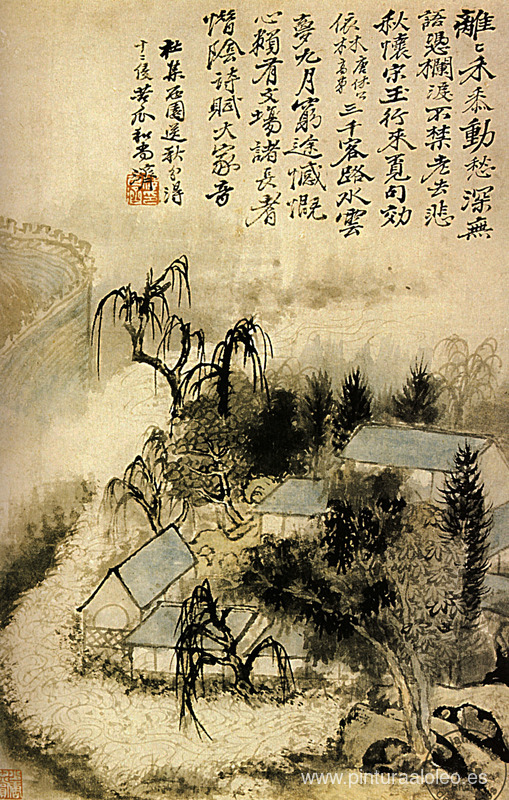 離〻禾黍動愁深無
語憑欄淚不禁老去悲
秋懷宋玉行來覓句効
三千客路水雲
夢九月窮途憾慨
心賴有文場諸長者
惜陰詩賦大家音
社集園送秋分得
十二侵苦瓜和尚濟
www.pinturaaloleo.es